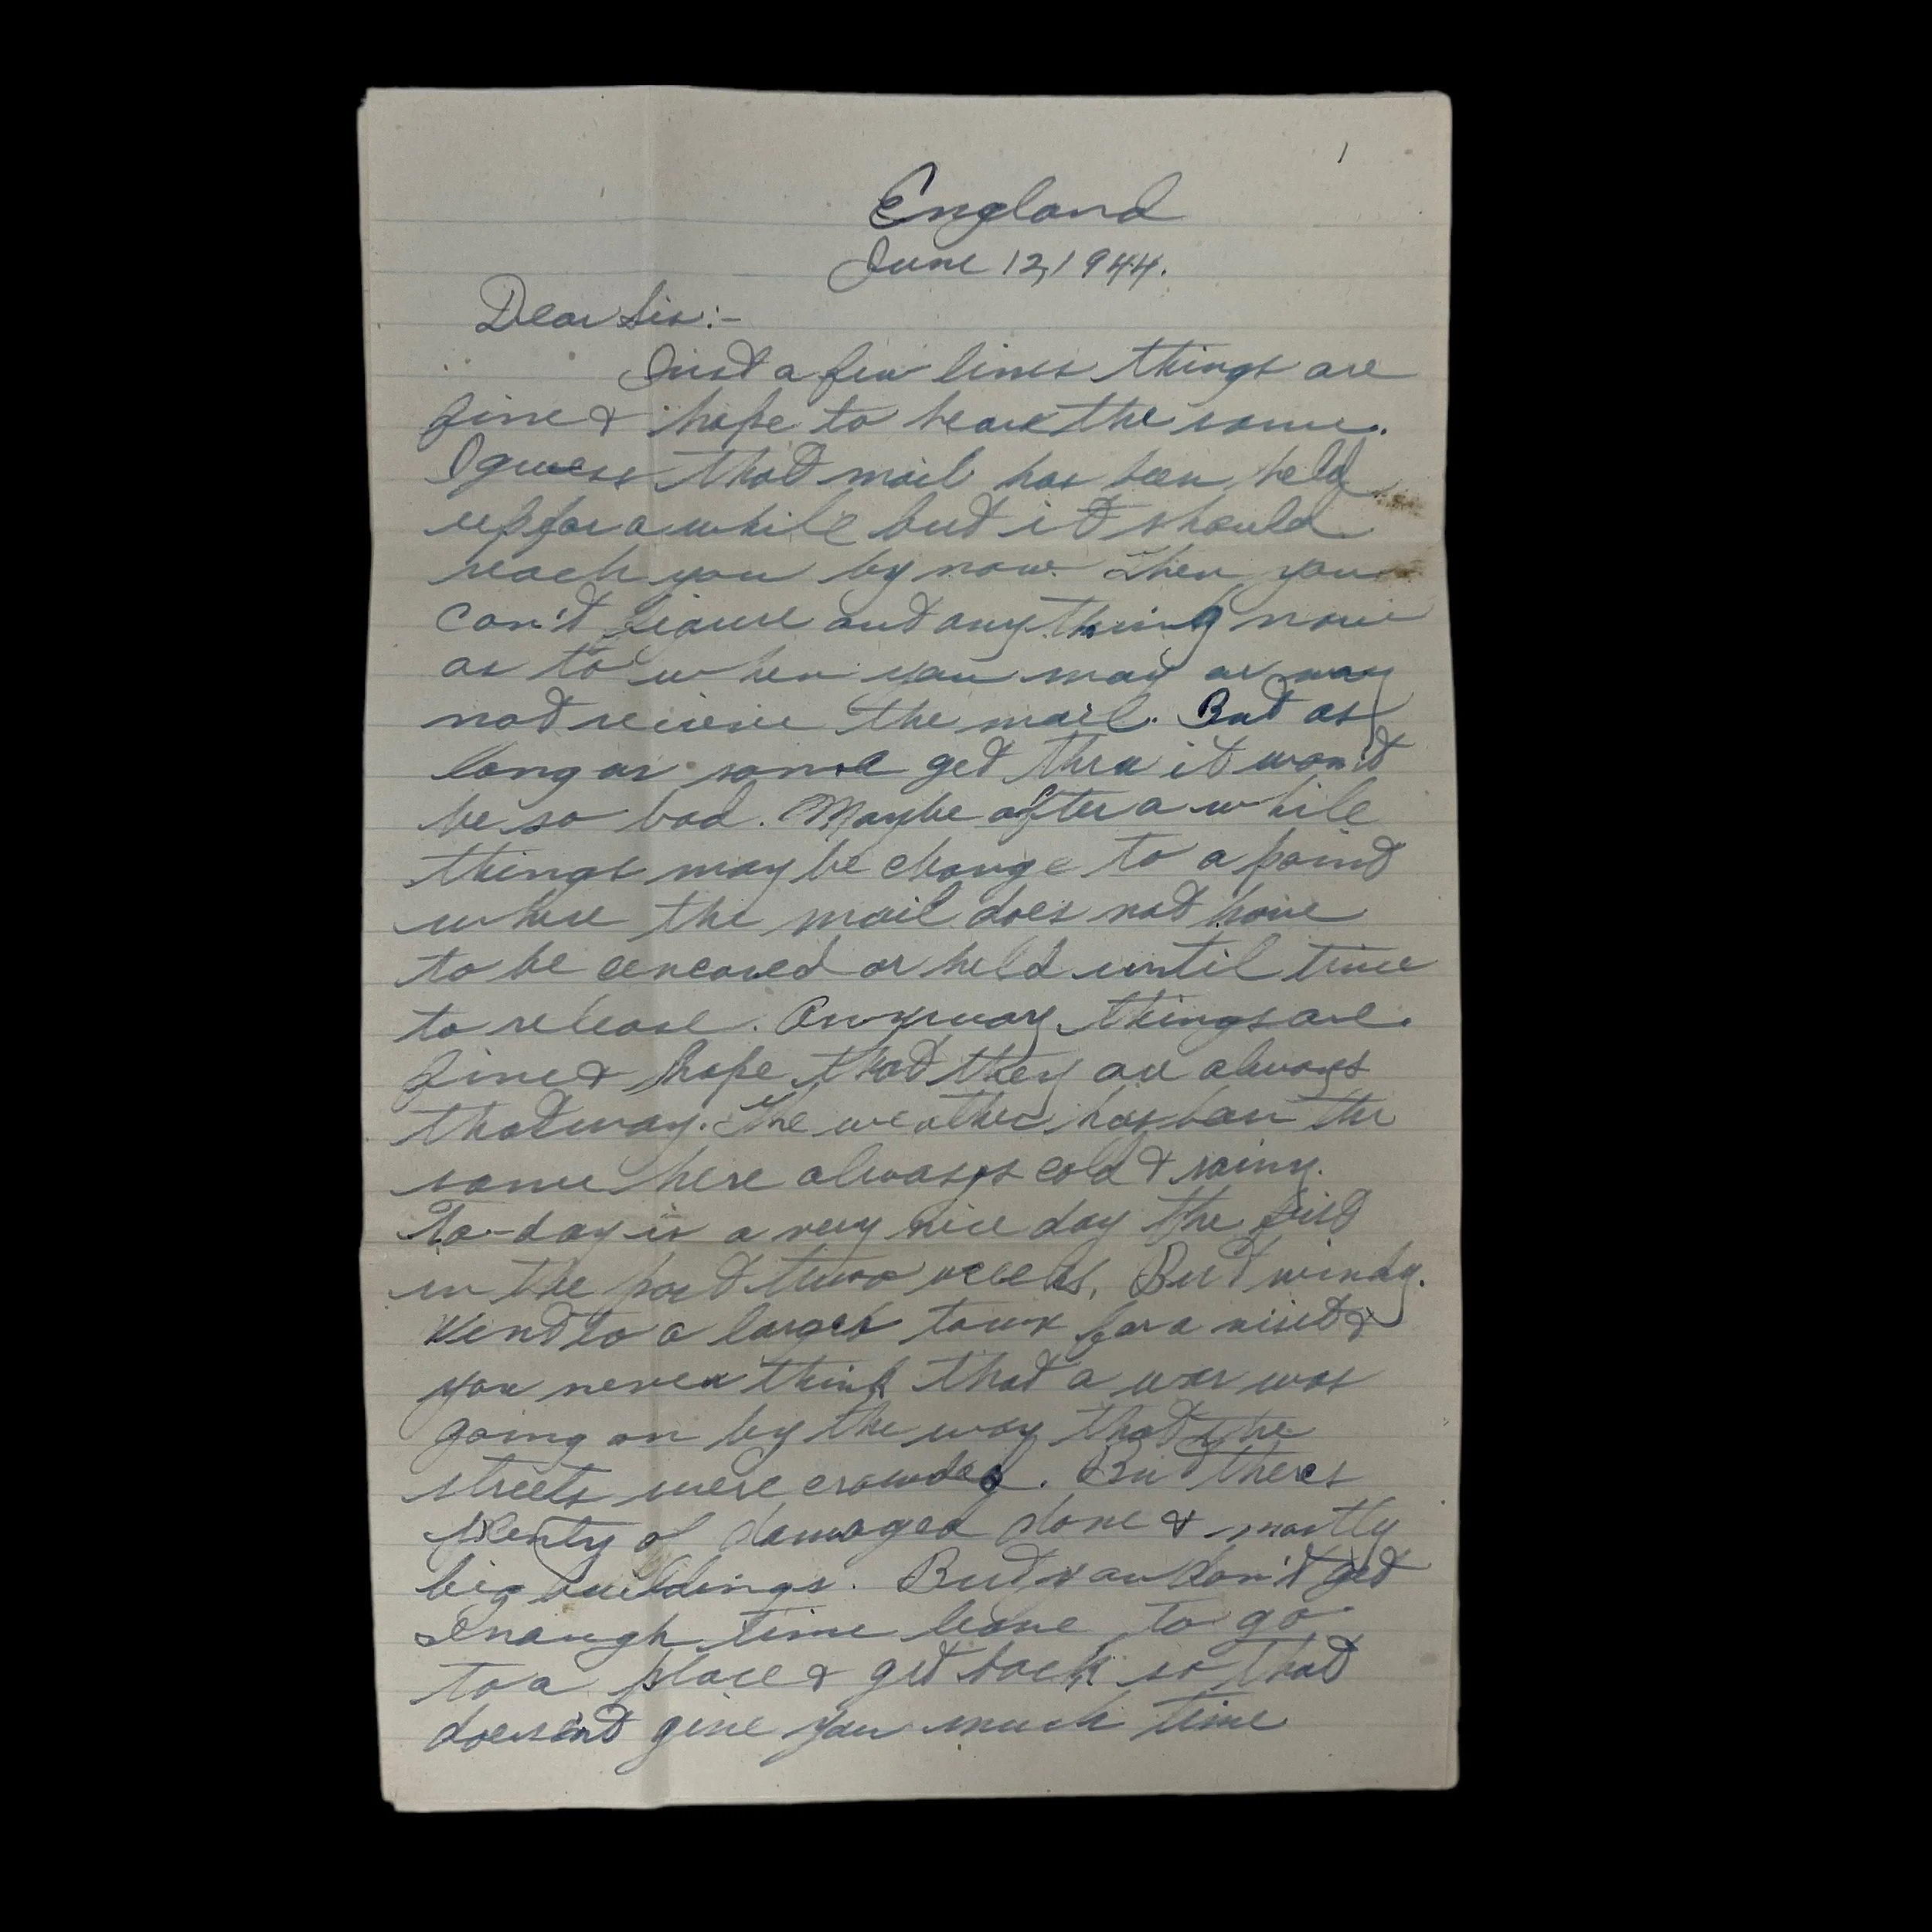 1
England
June 12, 1944.
Dear Sis:-
Just a few lines things are
fine & hope to hear the same.
I guess that mail has been held
up for a while but it should
reach you by now. Then you
can't figure out anything now
as to when you may or may
not recieve the mail. But as
long as some get thru it won't
be so bad. Maybe after a while
things may be change to a point
where the mail does not have
to be cencored or held until time
to release. Anyway things are
fine & hope that they are always
that way. The weather has been the
same here always cold & rainy.
To-day is a very nice day the first
in the past two weeks. But windy.
Went to a larger town for a visit &
you never think that a war was
going on by the way that the
streets were crowded. But theres
plenty of damaged done & mostly
big buildings. But you don't get
enough time leave to go
to a place & get back so that
doesn't give you much time